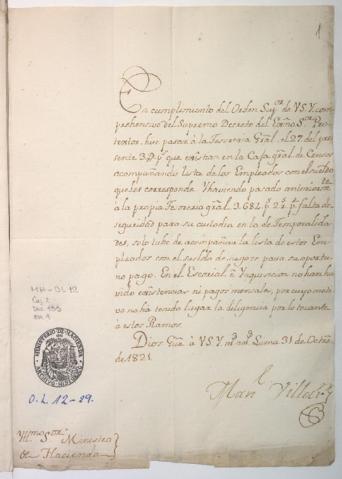 1
En cumplimiento del Orden Sup.or de V.S.Y. com
prehensivo del Supremo Decreto del Exmo S.or Pro
tector, hize pasar à la Tesoreria Gral. el 27 del pre
sente 3 p.s q.e existian en la Caja gral. de Censos
acompañando lista de los Empleados con el sueldo
que les corresponde. Y haviendo pasado anteriorm.te
à la propia Tesoreria gral. 3.681 p.s 2 r.s p.r falta de
seguridad para su custodia en la de Temporalida
des, solo hube de acompañar la lista de estos Em
pleados con el sueldo de para su oportu
no pago. En el Escorial é Ynquisicion no han ha
vido existencias ni pagos mensales, por cuyo moti
vo no ha tenido lugar la diligencia por lo tocante
à estos Ramos.
Dios gue. à V.S.Y. m.s a.s Lima 31 de Octre.
de 1821.
Man.l
MH-OL 12
O.L. 12-29.
MINISTERIO DE HACIENDA
Ylmo Sor. Ministro
de Hacienda